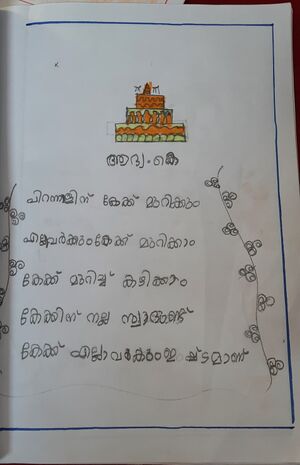 ആദ്യം കെ
പിറന്നാളിന് കേക്ക് മുറിക്കും
എല്ലവർക്കുംകേക്ക് മുറിക്കാം
കേക്ക് മുറിച്ച് കഴിക്കാം
കേക്കിന് നല്ല സ്വദുണ്ട്
കേക്ക് എല്ലാവർക്കുംഇഷ്ടമാണ്